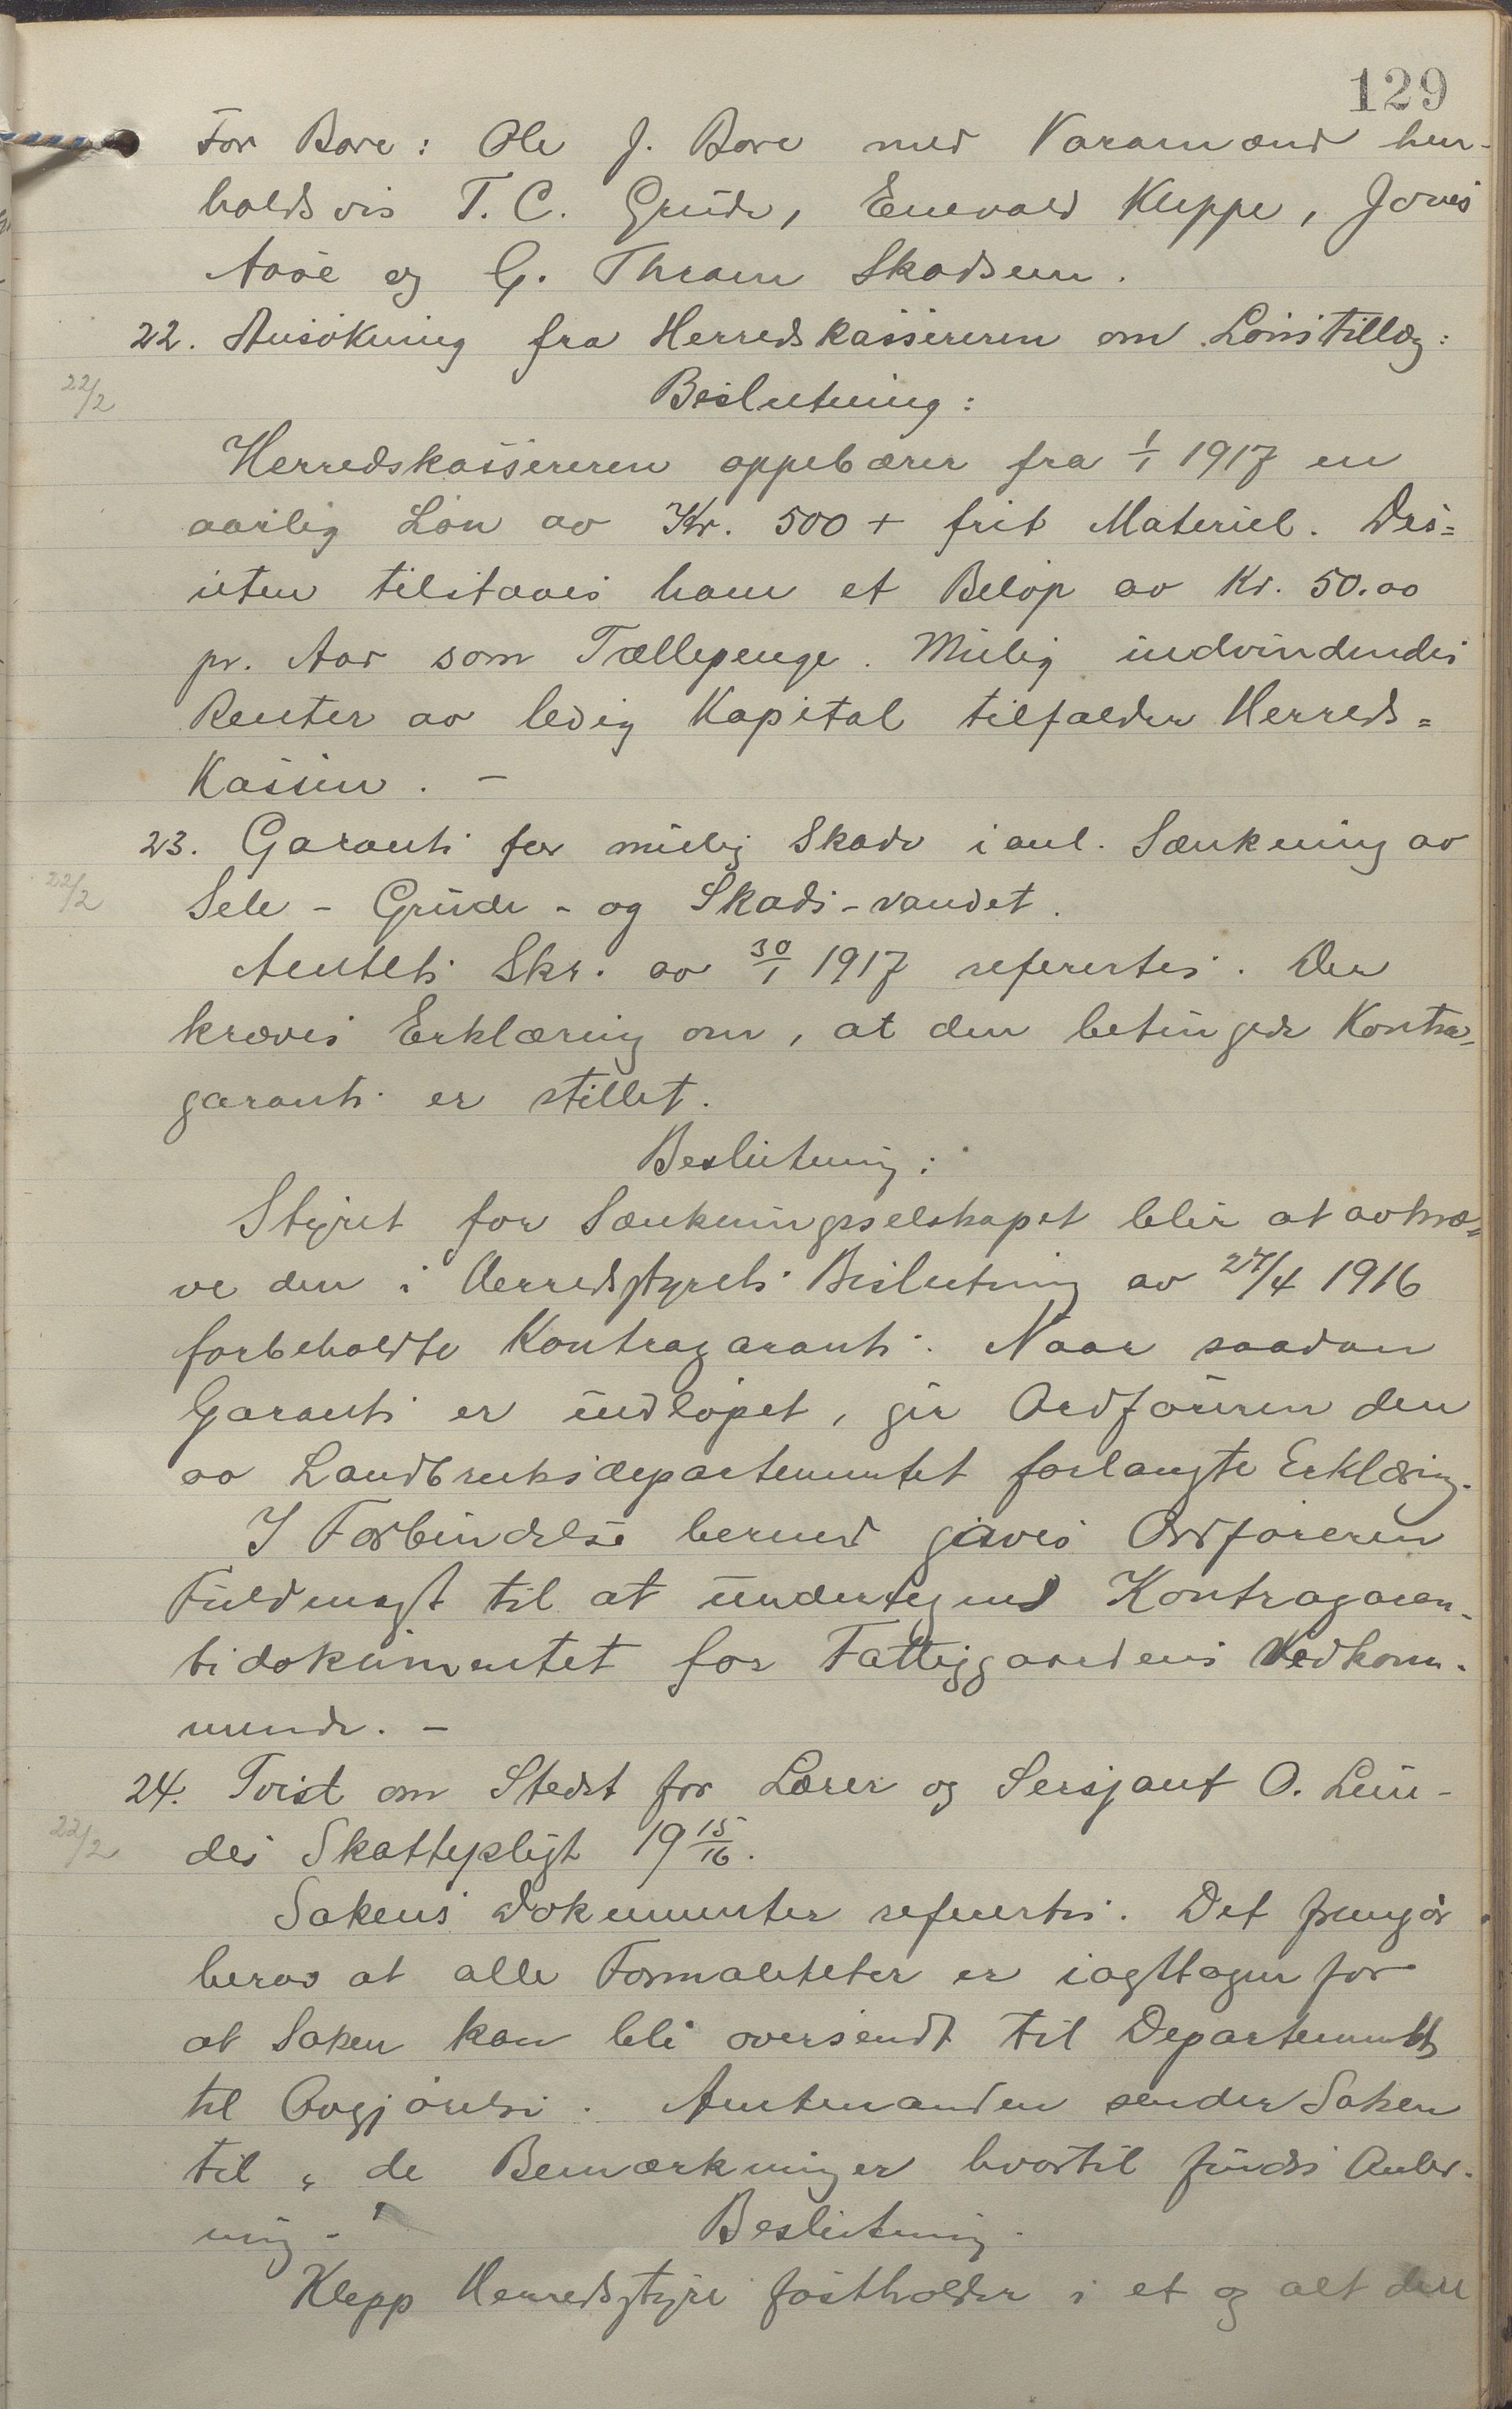 129
For Bore: Ole J. Bore med Varamænd hen-
holdsvis T. C. Grude, Enevald Kleppe, Jonas
Aase og G. Thram Skadsem.
22. Ansökning fra Herredskassereren om Lönstillæg:
22/2
Beslutning:
Herredskassereren oppebærer fra 1/1 1917 en
aarlig Lön av Kr. 500 + frit Materiel. Des=
uten tilstaaes ham et Belöp av Kr. 50.00
pr. Aar som Tællepenge. Mulig indvindendes
Renter av ledig Kapital tilfalder Herreds=
kassen. -
23. Garanti for mulig Skade i anl. Sænkning av
22/2
Sele - Grude - og Skads-vandet.
Amtets Skr. av 30/1 1917 refertes. Der
kræves Erklæring om, at den betingede Kontra=
garanti er stillet.
Beslutning:
Styret for Sænkningsselskapet blir at avkræ=
ve den i Herredsstyrets Beslutning av 27/4 1916
forbeholdte Kontragaranti. Naar saadan
Garanti er indlöpet, gir Ordföreren den
av Landbruksdepartementet forlangte Erklæring.
I Forbindelse hermed gives Ordföreren
Fuldmagt til at undertegne Kontragaran-
tidokumentet for Fattiggaardens Vedkom-
mende. -
24. Tvist om Stedet for Lærer og Sersjant O. Lun-
22/2
des Skattepligt 19 15/16.
Sakens Dokumenter refertes. Det fremgår
herav at alle Formaliteter er iagttagen for
at Saken kan bli oversendt til Departementet
til Avgjörelse. Amtmanden sender Saken
til "de Bemærkninger hvortil findes Anled-
ning."
Beslutning.
Klepp Herredsstyre fastholder i et og alt den